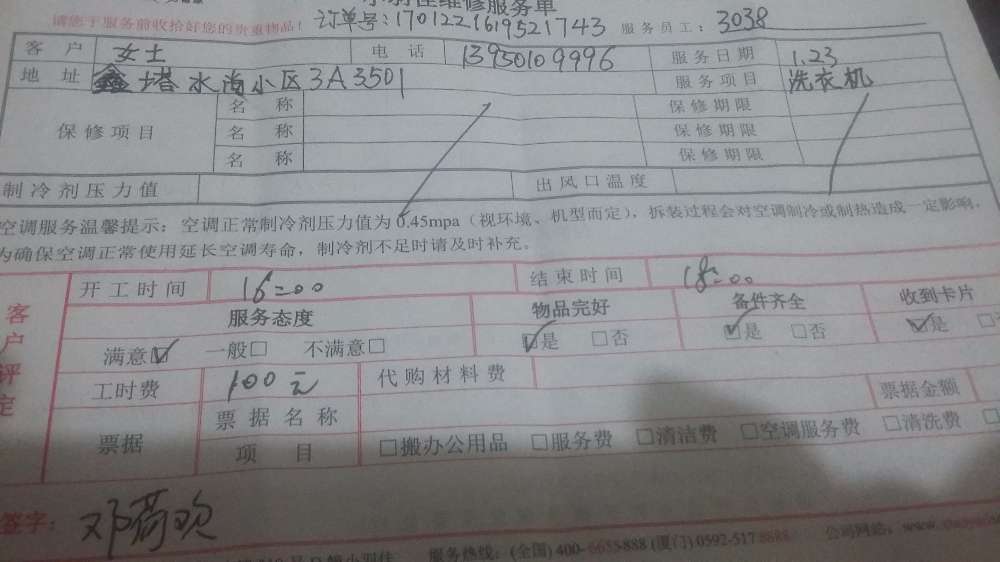 维修服务单
请您于服务前收拾好您的贵重物品! 订单号:170122161952 1743 服务员工: 3038
客户 女士 电话 13950109996 服务日期 1.23
地址 鑫塔水尚小区3A3501 服务项目 洗衣机
保修项目 名称 保修期限
名称 保修期限
名称 保修期限
制冷剂压力值 出风口温度
空调服务温馨提示:空调正常制冷剂压力值为0.45mpa(视环境、机型而定),拆装过程会对空调制冷或制热造成一定影响,
为确保空调正常使用延长空调寿命,制冷剂不足时请及时补充。
客户评定
开工时间 16:00 结束时间 18:00
服务态度 物品完好 备件齐全 收到卡片
满意☑ 一般□ 不满意□ ☑是 □否 ☑是 □否 ☑是
工时费 100元 代购材料费
票据 票据名称 票据金额
项目 □搬办公用品 □服务费 □清洁费 □空调服务费 □清洗费
签字: 邓荷欢
服务热线:(全国)400-6655888 (厦门)0592-5178888 公司网站: